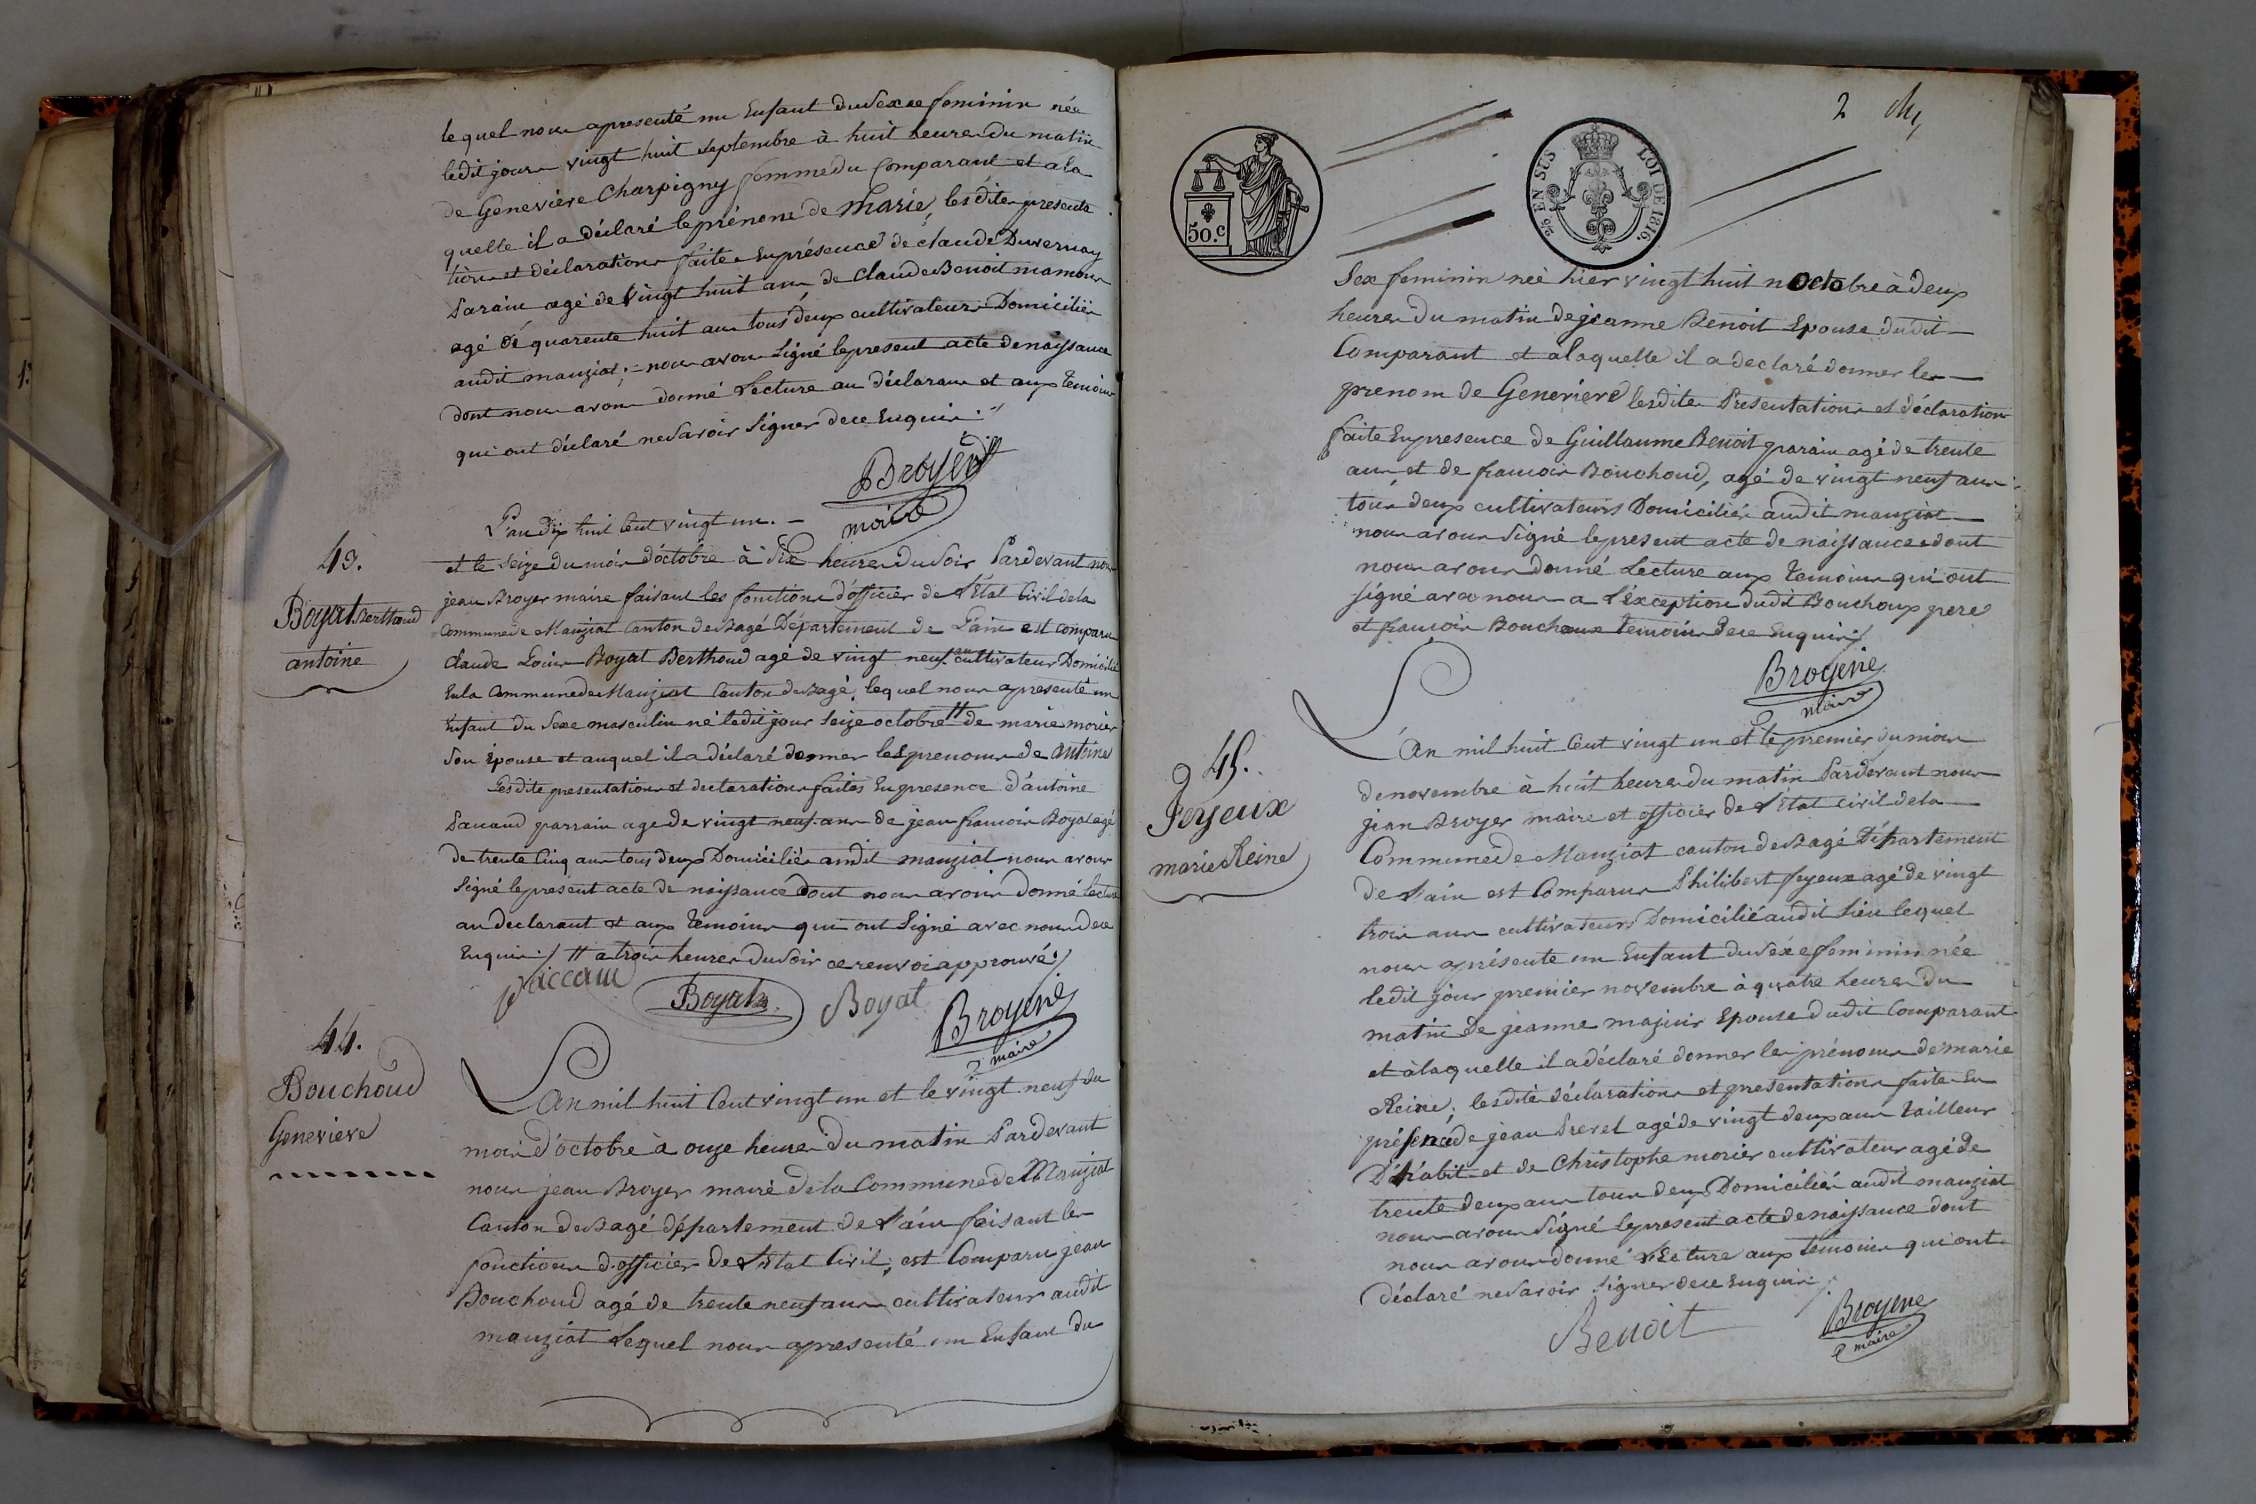 lequel nous a presenté un Enfant du Sexe feminin née
ledit jour vingt huit Septembre à huit heures du matin
de Geneviève Charpigny femme du Comparant et a la
quelle il a déclaré le prénoms de Marie, les dites presenta
tions et déclarations faites En présence de claude Duvernay
Parain agé de vingt huit ans de Claude Benoit mamour
agé de quarente huit ans tous deux cultivateurs Domiciliés
audit manziat; nous avons Signé le present acte de naissance
dont nous avons donné Lecture au déclarant et aux temoins
qui ont déclaré ne Savoir Signer de ce Enquis
Broyer
maire
L'an dix huit Cent vingt un.
43.
et le seize du mois d'octobre à six heures du Soir Pardevant nous
jean Broyer maire faisant les fonctions d'officier de L'Etat Civil de la
Boyat Berthoud
Commune de Manziat Canton de Bagé Département de L'ain est comparu
antoine
Claude Louis Boyat Berthoud agé de vingt neuf ans cultivateur Domicilié
En la Commune de Manziat Canton de Bagé, lequel nous a presenté un
Enfant du Sexe masculin né ledit jour Seize octobre # de marie morier
Son Epouse et auquel il a déclaré donner les prenoms de antoine
Lesdite presentations et declarations faites En presence d'antoine
Pauaud parrain age de vingt neuf ans de jean francois Boyat agé
de trente Cinq ans tous deux Domiciliés audit manziat nous avons
Signé le present acte de naissance Dont nous avons donné lecture
au declarant et aux temoins qui ont Signé avec nous de ce
Enquis # a trois heures du soir ce renvoi approuvé
paccaud
Boyat
Boyat
Broyer
maire
44.
Bouchoud
Genevieve
L'An mil huit Cent vingt un et le vingt neuf du
mois d'octobre à onze heures du matin Pardevant
nous jean Broyer maire de la Commune de Manziat
Canton de Bagé département de L'ain faisant les
fonctions d'officier de L'Etat Civil, est Comparu jean
Bouchoud agé de trente neuf ans cultivateur audit
manziat Lequel nous a presenté un Enfant du
2
50.c
25.c EN SUS
LOI DE 1816.
Sex feminin neé hier vingt huit octobre à deux
heures du matin de jeanne Benoit Epouse dudit
Comparant et a laquelle il a declaré donner les
prenom de Genevieve lesdites Presentations et déclarations
faite En presence de Guillaume Benoit parain agé de trente
ans et de francois Bouchoud, agé de vingt neuf ans
tous deux cultivateurs Domiciliés audit manziat
nous avons Signé le present acte de naissance dont
nous avons donné Lecture aux temoins qui ont
signé avec nous a L'exception dudit Bouchoux pere
et francois Bouchoux temoins de ce Enquis
Broyer
maire
45.
Feyeux
marie Reine
L'An mil huit Cent vingt un et le premier du mois
de novembre à huit heures du matin Pardevant nous
jean Broyer maire et officier de L'Etat Civil de la
Commune de Manziat canton de Bagé Département
de L'ain est Comparus Philibert feyeux agé de vingt
trois ans cultivateurs Domicilié audit Lieu lequel
nous a présente un Enfant du Séxe feminin née
ledit jour premier novembre à quatre heures du
matin de jeanne Epouse dudit Comparant
et à laquelle il a déclaré donner les prénoms de marie
Reine, lesdite déclarations et presentations faite En
présence de jean Prevel agé de vingt deux ans tailleur
D'habit et de Christophe morier cultivateur agé de
trente deux ans tous deux Domiciliés audit manziat
nous avons Signé le present acte de naissance dont
nous avons donné Lecture aux temoins qui ont
déclaré ne Savoir Signer de ce Enquis
Benoit
Broyer
maire